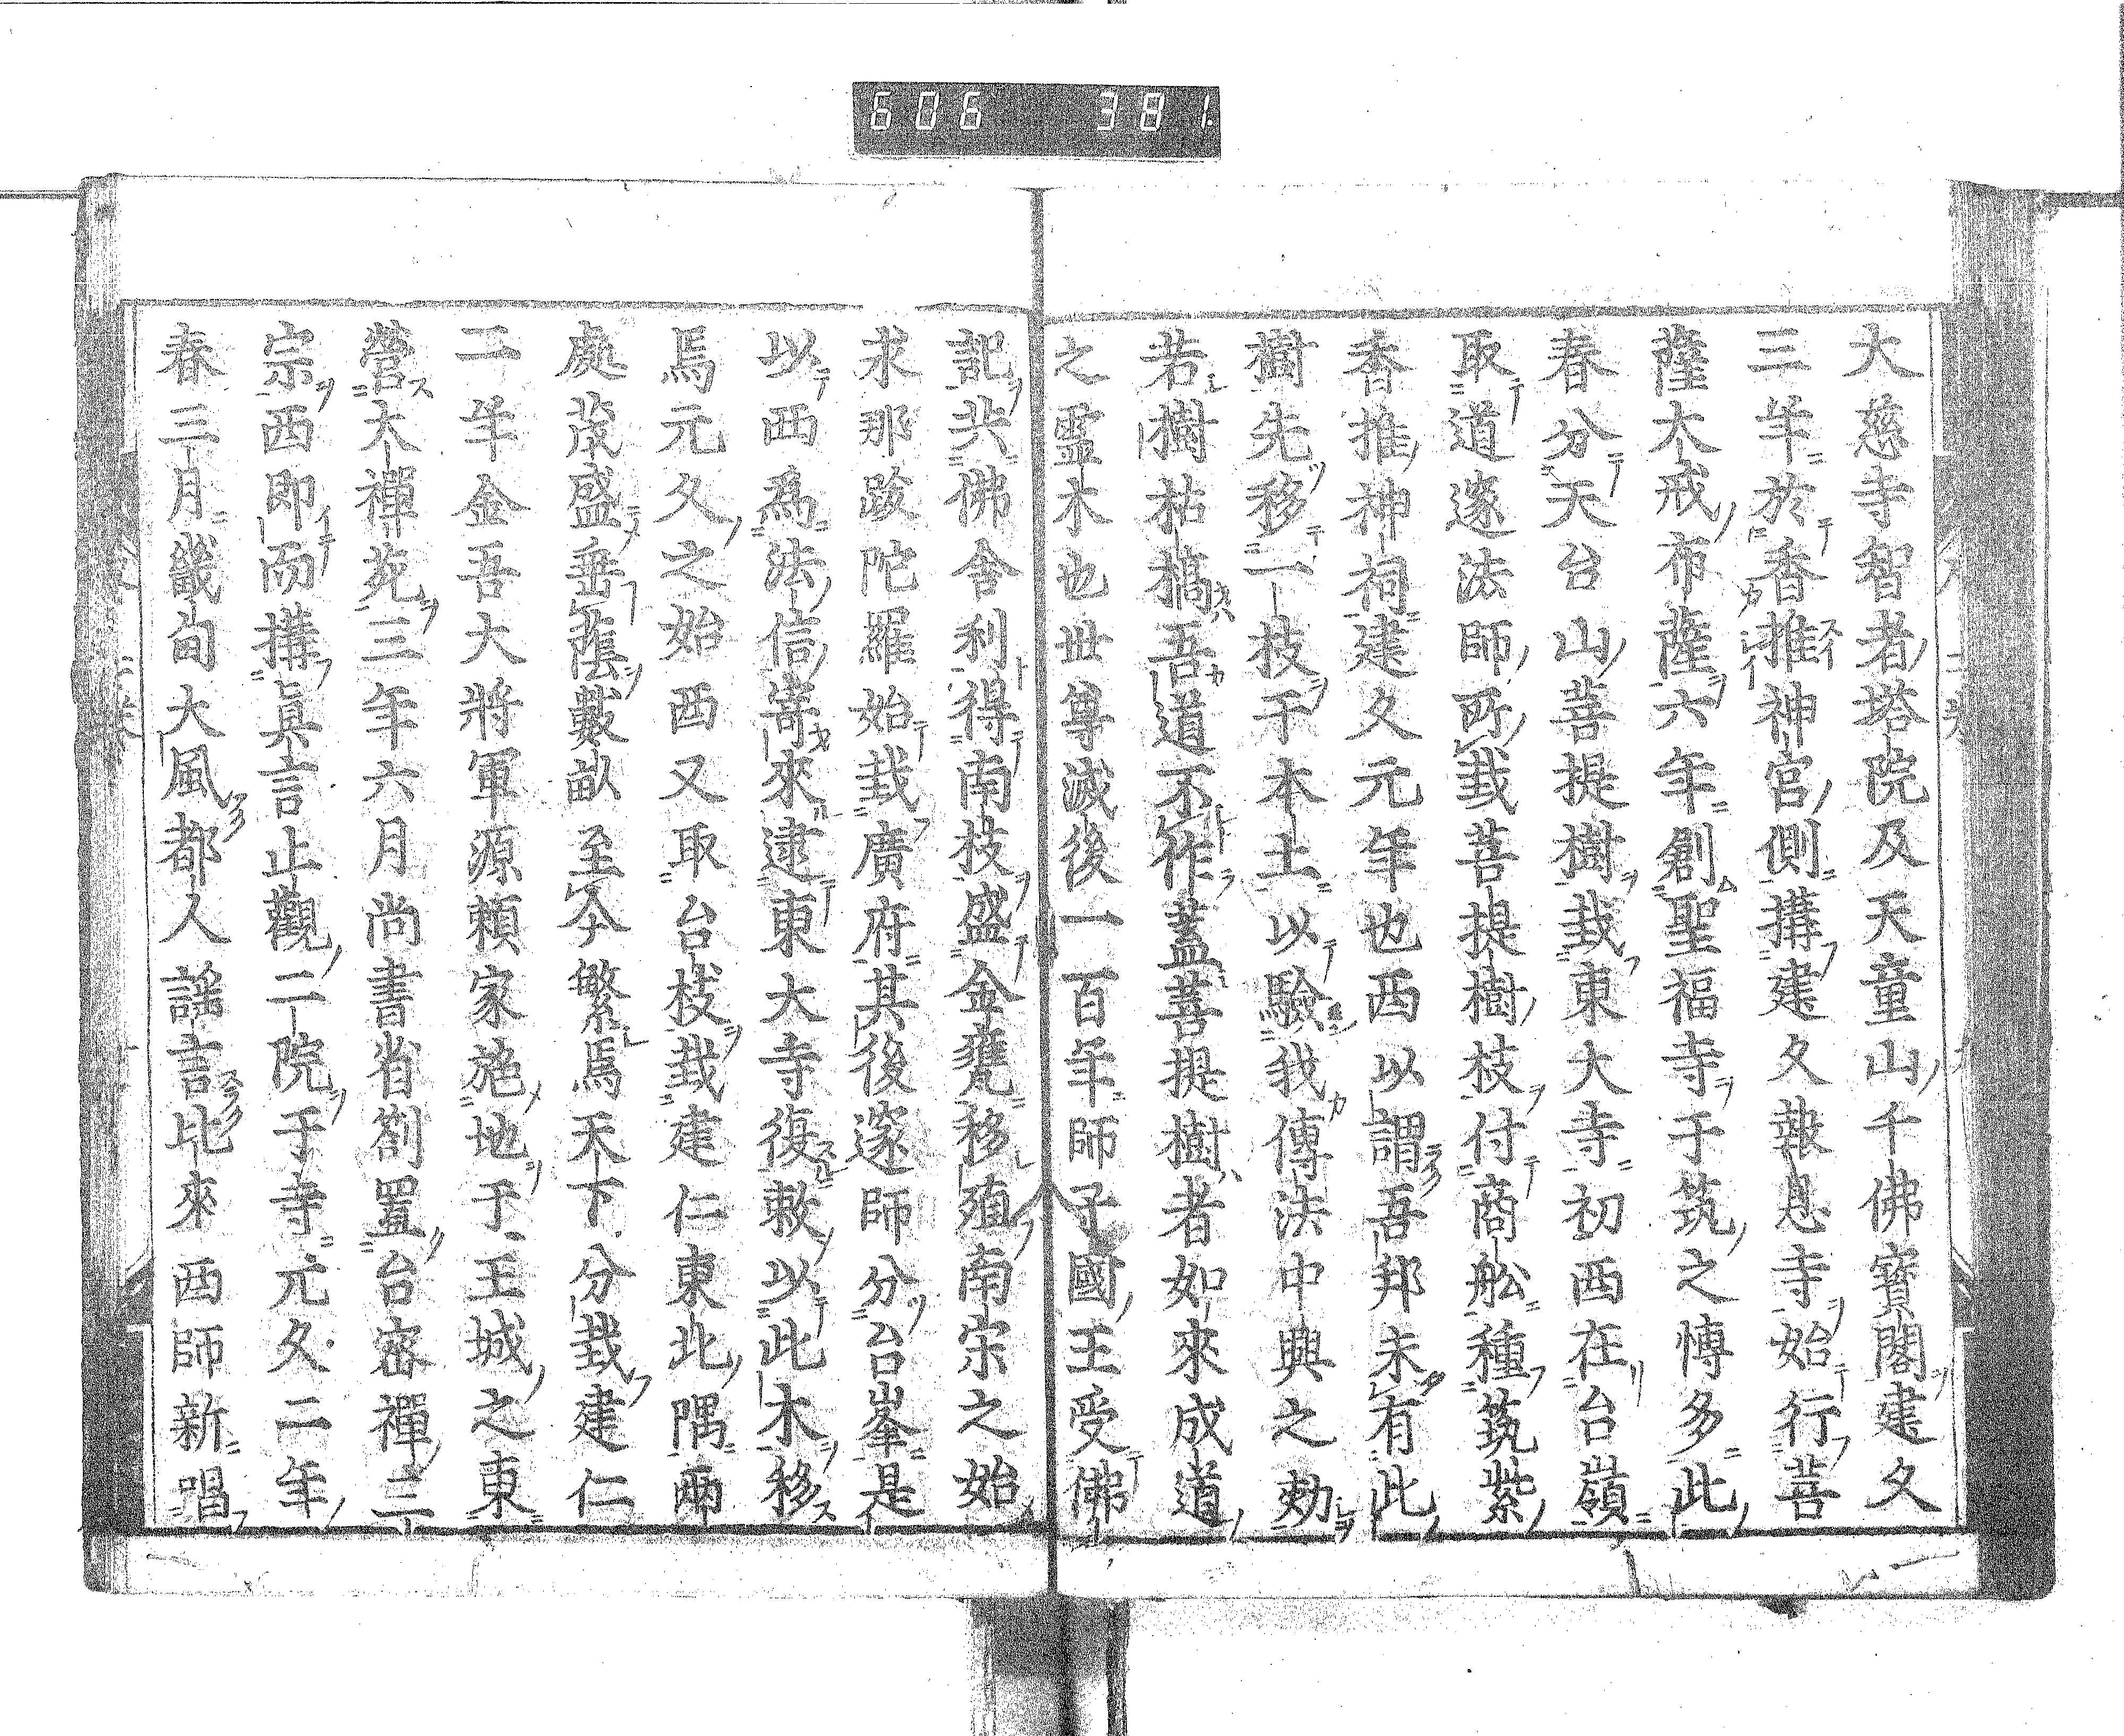 606 381.
大慈寺智者塔院及天童山千佛寶閣建久
三年於香推神宮側搆建久報恩寺始行菩
薩大戒布薩六年創聖福寺于筑之博多此
春分天台山菩提樹栽東大寺初西在台嶺
取道邃法師所栽菩提樹枝付商舩種筑紫
香推神祠建久元年也西以謂吾邦未有此
樹先移一枝于本土以驗我傳法中興之効
若樹枯槁吾道不作蓋菩提樹者如來成道
之靈木也世尊滅後一百年師子國王受佛
記共佛舍利得南枝盛金甕移殖南宋之始
求那跋陀羅始栽廣府其後邃師分台峯是
以西爲法信寄來逮東大寺復敕以此木移
焉元久之始西又取台枝栽建仁東北隅兩
處茂盛垂蔭數畝至今繁焉天下分栽建仁
二年金吾大將軍源賴家施地于王城之東
營大禪苑三年六月尚書省劄置台密禪三
宗西即而搆眞言止觀二院于寺元久二年
春三月畿甸大風都人謡言比來西師新唱